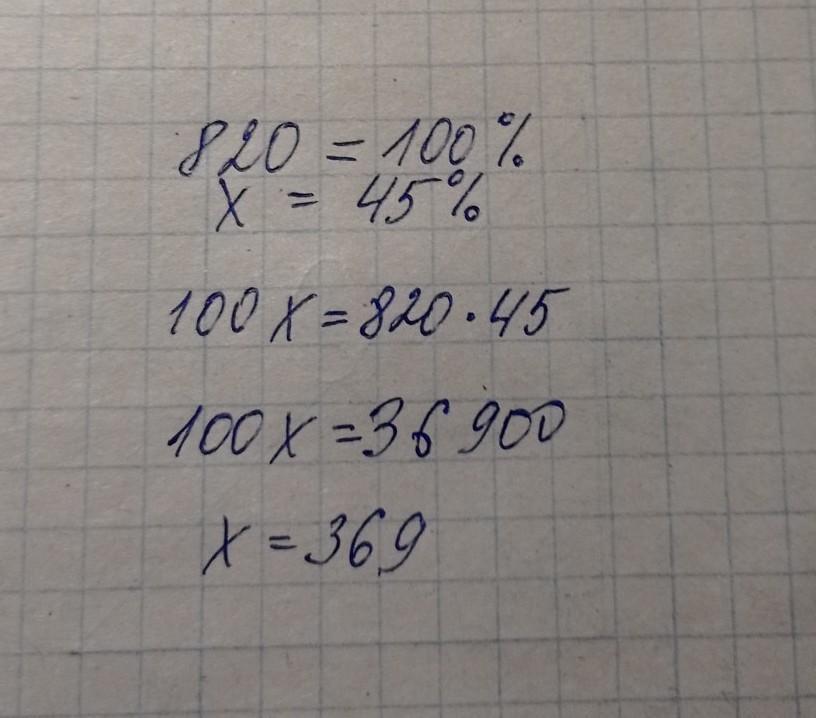 820 = 100%
x = 45%
100x = 820 · 45
100x = 36 900
x = 369